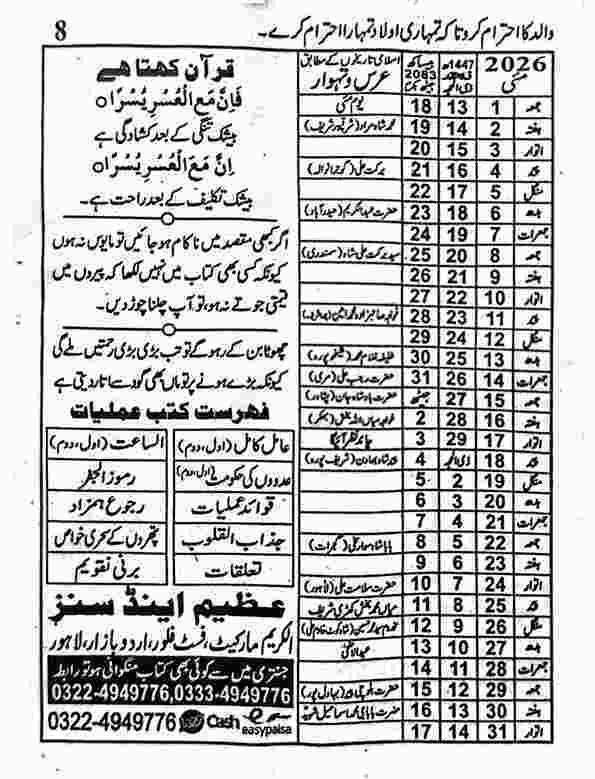 والد کا احترام کرو تاکہ تمہاری اولاد تمہارا احترام کرے۔
8
2026
مئی
1447ھ
ذیقعدہ
ذی الحجہ
بیساکھ
2083
جیٹھ
اسلامی تاریخوں کے مطابق
عرس و تہوار
جمعہ 1 13 18 یوم مئی
ہفتہ 2 14 19 محمد شاہ مراد (شرقپور شریف)
اتوار 3 15 20
پیر 4 16 21 برکت علی (گوجرانوالہ)
منگل 5 17 22
بدھ 6 18 23 حضرت عبدالکریم (حیدرآباد)
جمعرات 7 19 24
جمعہ 8 20 25 سید برکت علی شاہ (سمندری)
ہفتہ 9 21 26
اتوار 10 22 27
پیر 11 23 28 خواجہ صاحبزادہ محمد امین
منگل 12 24 29
بدھ 13 25 30 خلیفہ غلام محمد (شیخوپورہ)
جمعرات 14 26 31 حضرت رجب علی (مری)
جمعہ 15 27 جیٹھ حضرت بادشاہ جان (پشاور)
ہفتہ 16 28 2 خواجہ عباس اللہ بخش (بھکر)
اتوار 17 29 3 چاند نظر آئیگا
پیر 18 ذی الحجہ 4 پیر شاہ بہاون (شریف پورہ)
منگل 19 2 5
بدھ 20 3 6
جمعرات 21 4 7
جمعہ 22 5 8 بابا شاہ سوار علی (گجرات)
ہفتہ 23 6 9
اتوار 24 7 10 حضرت سلامت علی (لاہور)
پیر 25 8 11 میاں محمد بخش کھڑی شریف
منگل 26 9 12 مخدوم سید حسین
بدھ 27 10 13 عیدالاضحیٰ
جمعرات 28 11 14
جمعہ 29 12 15 حضرت بلوچی پیر (بہاولپور)
ہفتہ 30 13 16 حضرت بابا جی محمد اسماعیل شہید
اتوار 31 14 17
قرآن کہتا ھے
فَاِنَّ مَعَ الْعُسْرِ يُسْرًا
بیشک تنگی کے بعد کشادگی ہے
اِنَّ مَعَ الْعُسْرِ يُسْرًا
بیشک تکلیف کے بعد راحت ہے۔
اگر کبھی مقصد میں ناکام ہو جائیں تو مایوس نہ ہوں
کیونکہ کسی بھی کتاب میں نہیں لکھا کہ پیروں میں
قیمتی جوتے نہ ہو، تو آپ چلنا چھوڑ دیں۔
چھوٹا بن کے رہو گے تو تب بڑی بڑی رحمتیں ملے گی
کیونکہ بڑے ہونے پر تو ماں بھی گود سے اتار دیتی ہے
فہرست کتب عملیات
عامل کامل (اول، دوم) الساعت (اول، دوم)
عددوں کی حکومت (اول، دوم) رموز الجفر
قوائد عملیات رجوع ہمزاد
جذاب القلوب پتھروں کے سحری خواص
تعلقات برنی تقویم
عظیم اینڈ سنز
الکریم مارکیٹ، فسٹ فلور، اردو بازار، لاہور
جنتری میں سے کوئی بھی کتاب منگوانی ہو تو رابطہ
0322-4949776, 0333-4949776
0322-4949776 Cash easypaisa